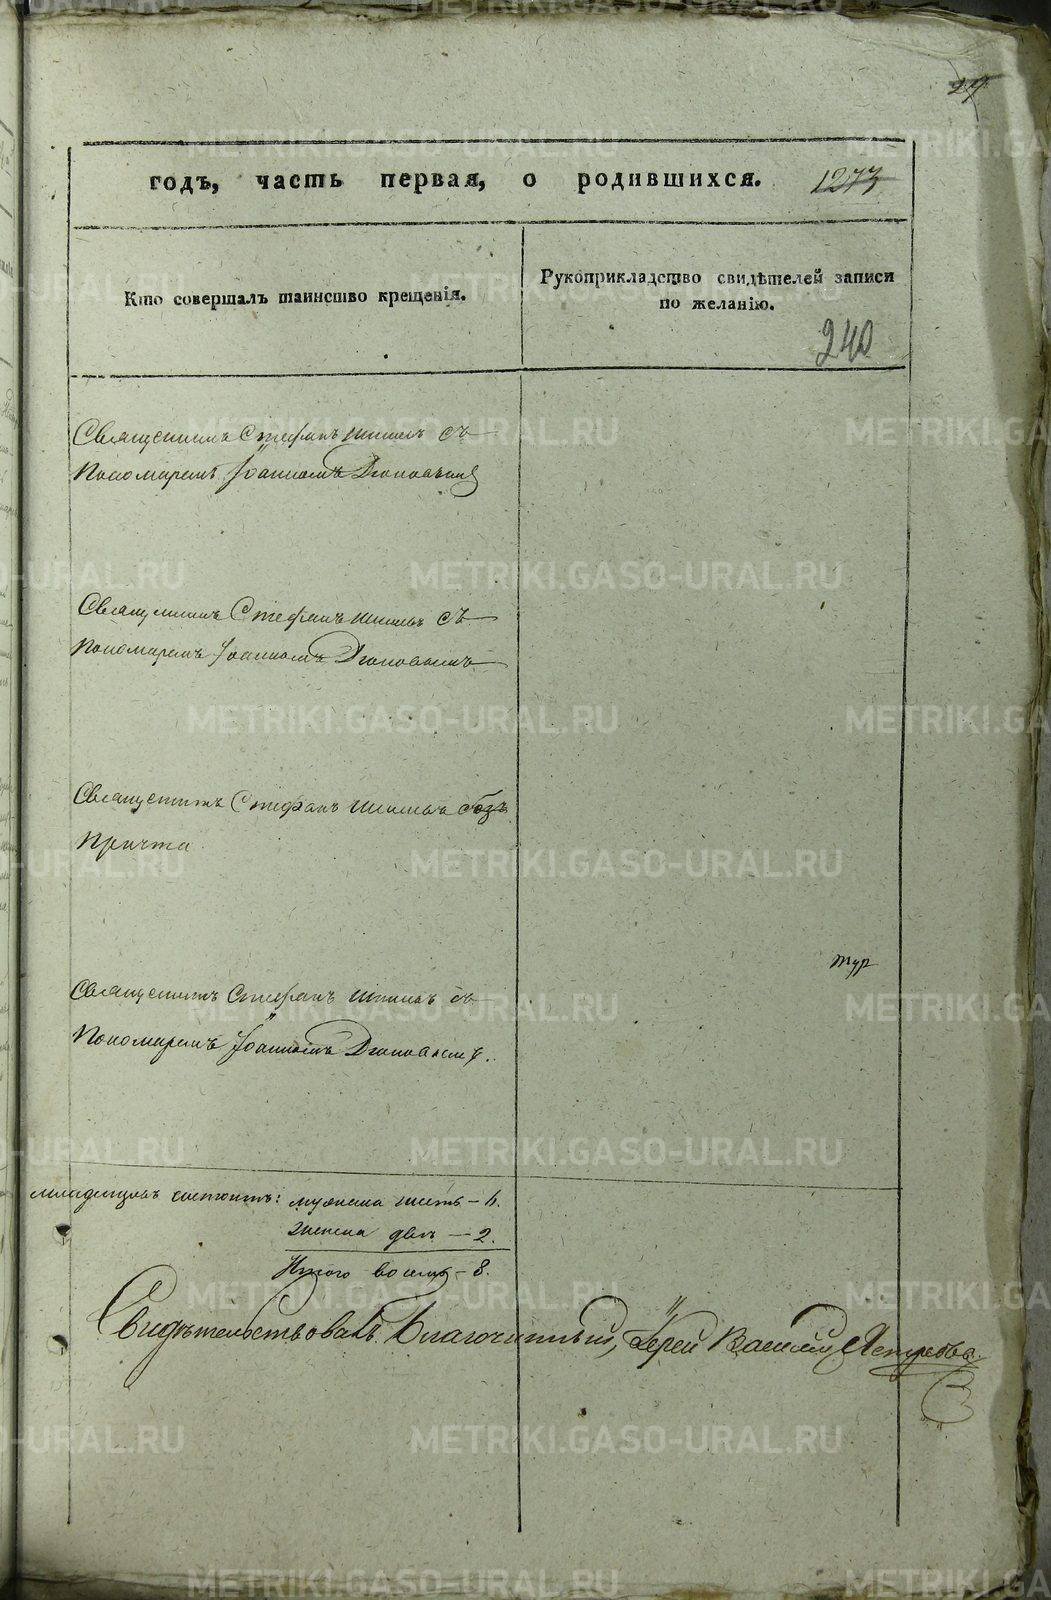 годъ, часть первая, о родившихся. 1273
Кто совершалъ таинство крещенія.
Рукоприкладство свидѣтелей записи
по желанію.
240
Священникъ Стефанъ съ
Пономаремъ Іоанномъ
Священникъ Стефанъ съ
Пономаремъ Іоанномъ
Священникъ Стефанъ безъ
Причта
Священникъ Стефанъ съ
Пономаремъ Іоанномъ
младенцовъ состоитъ: мужеска шесть – 6.
женска двѣ – 2.
Итого восемь – 8.
Свидѣтельствовалъ Благочинный, Іерей Василій
METRIKI.GASO-URAL.RU